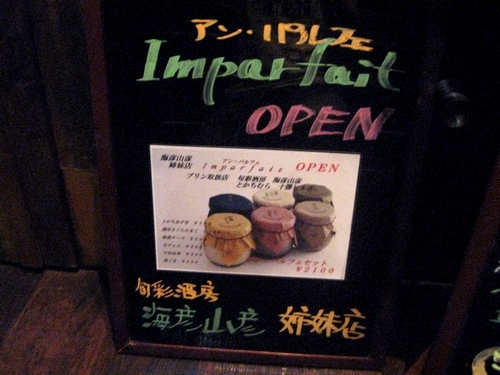 アン・パルフェ
Imparfait
OPEN
海彦山彦
姉妹店
アン・パルフェ
Imparfait
OPEN
プリン取扱店 旬彩酒房 海彦山彦
とかちむら
パルフェセット
￥2100
旬彩酒房
海彦山彦 姉妹店